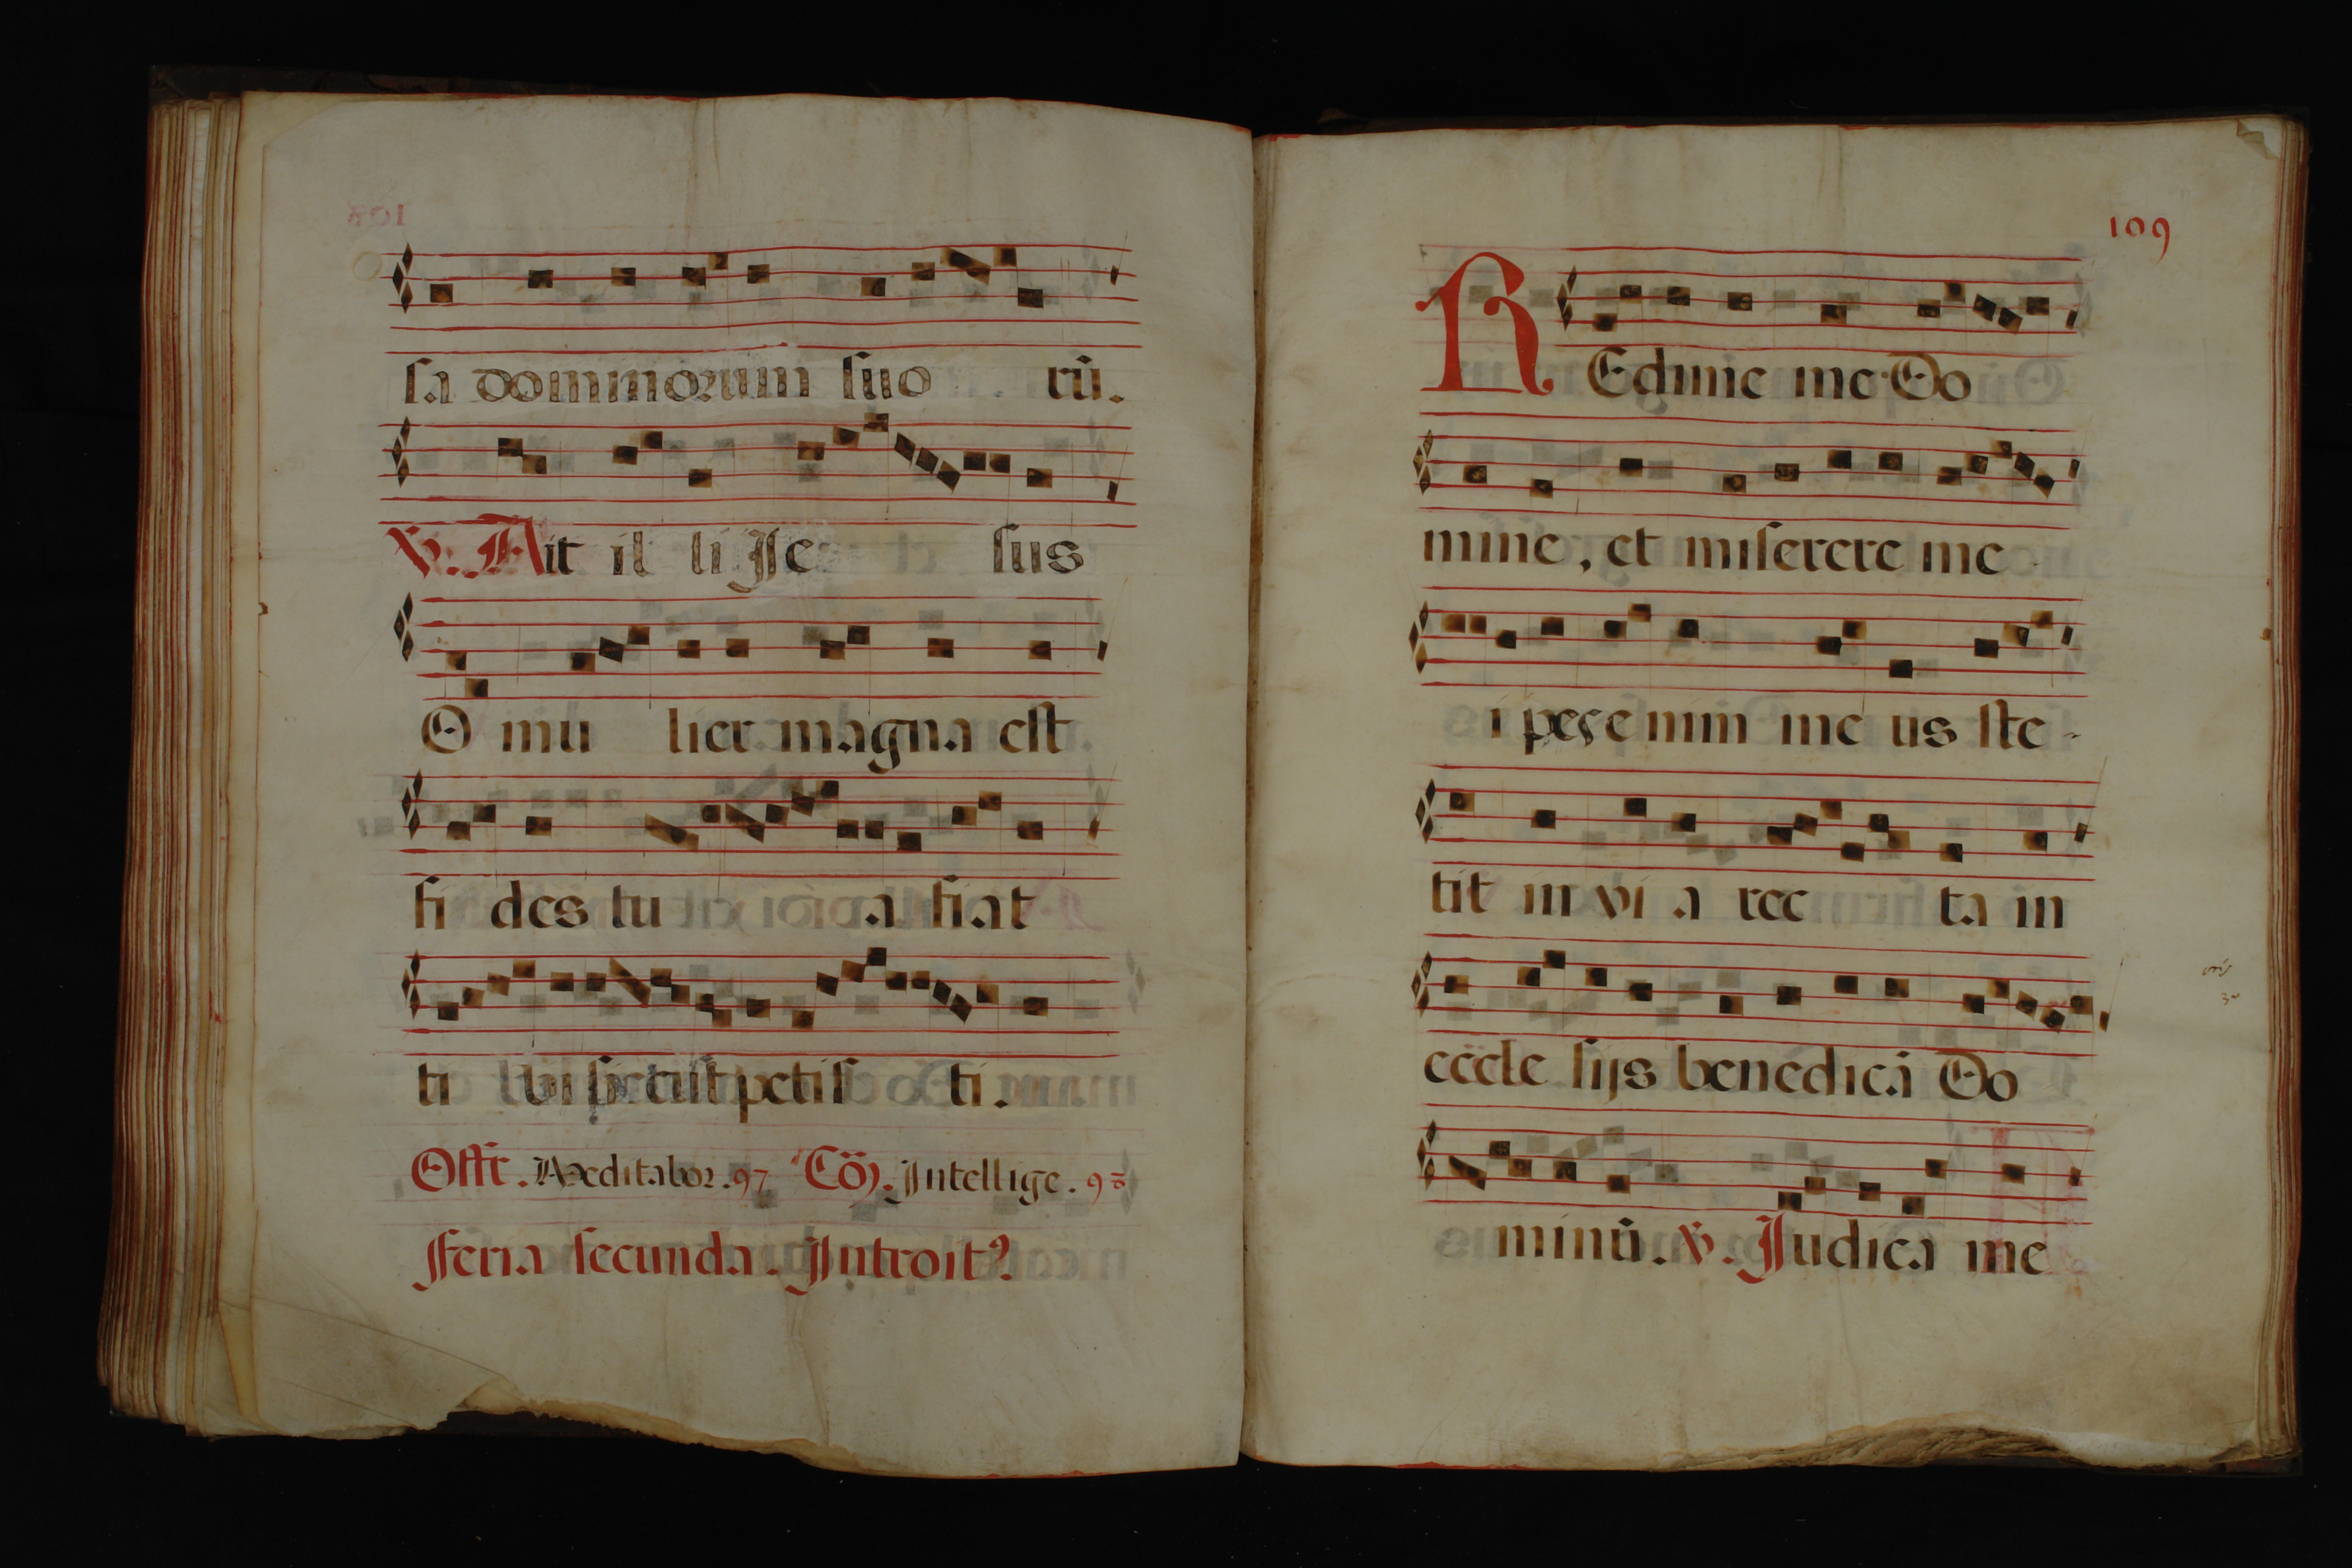 sa dominorum suo rū.
℣. Ait il li Jse sus
O mu lier magna est
fi des tu a fiat
ti bi petisti.
Offr. Meditabor. 97 Cōj. Intellige. 98
Feria secunda. Introitꝰ.
109
REdime me Do
mine, et miserere me
i pes enim me us ste-
tit in vi a rec ta in
eccle sijs benedicā Do
minū. ℣. Judica me